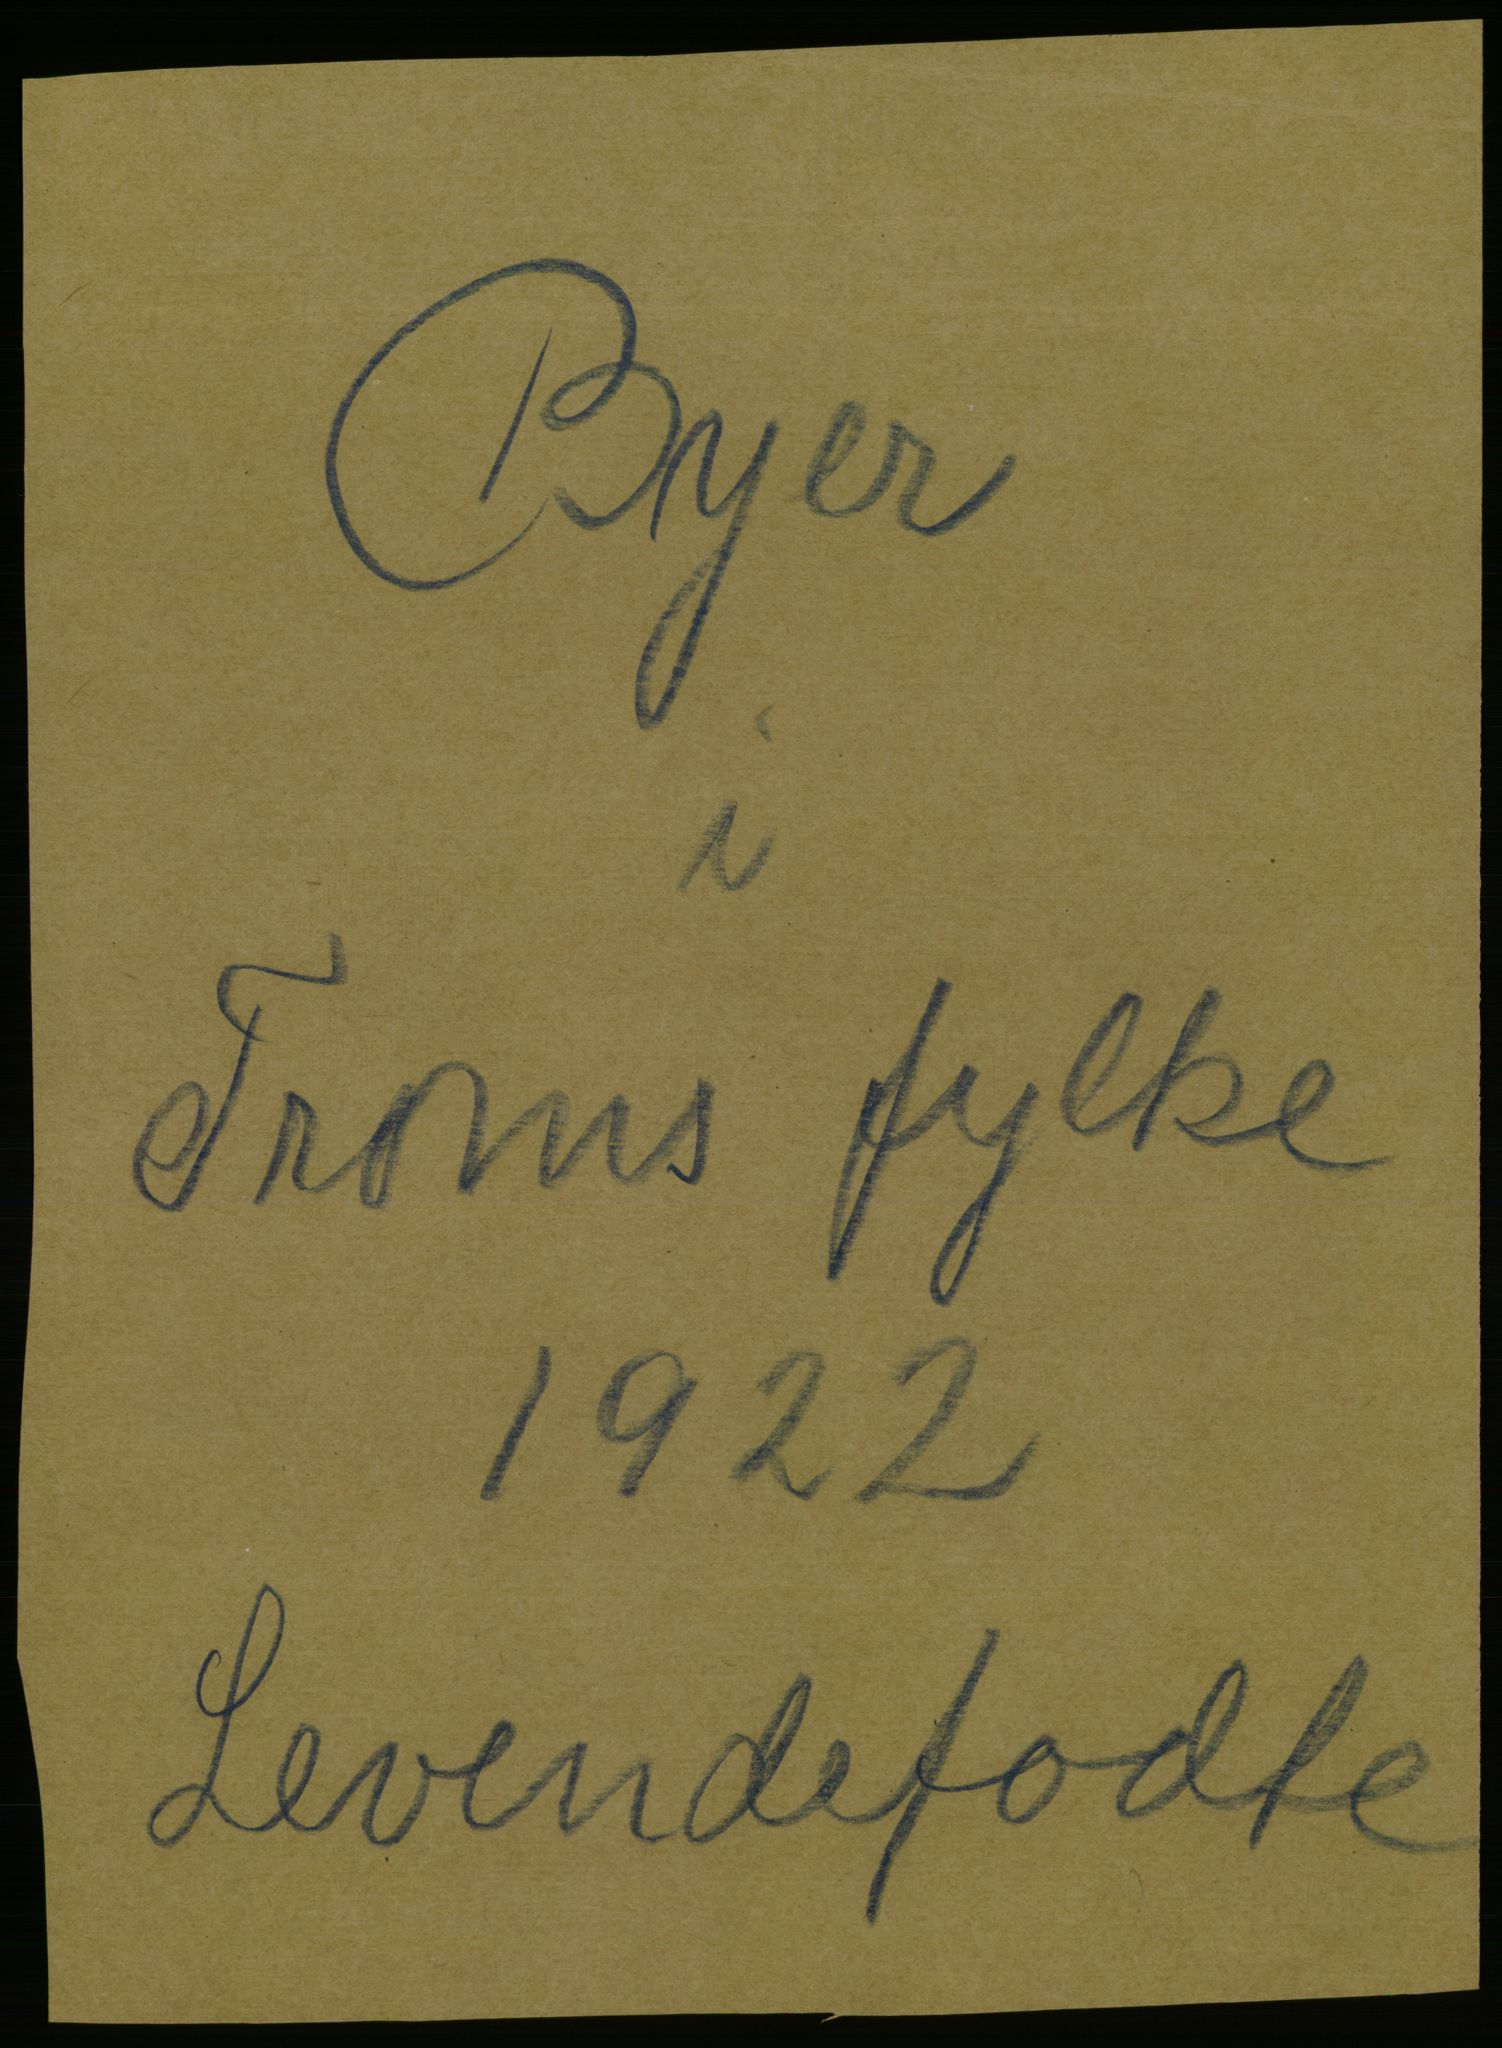 Byer
i
Troms fylke
1922
Levendefodte